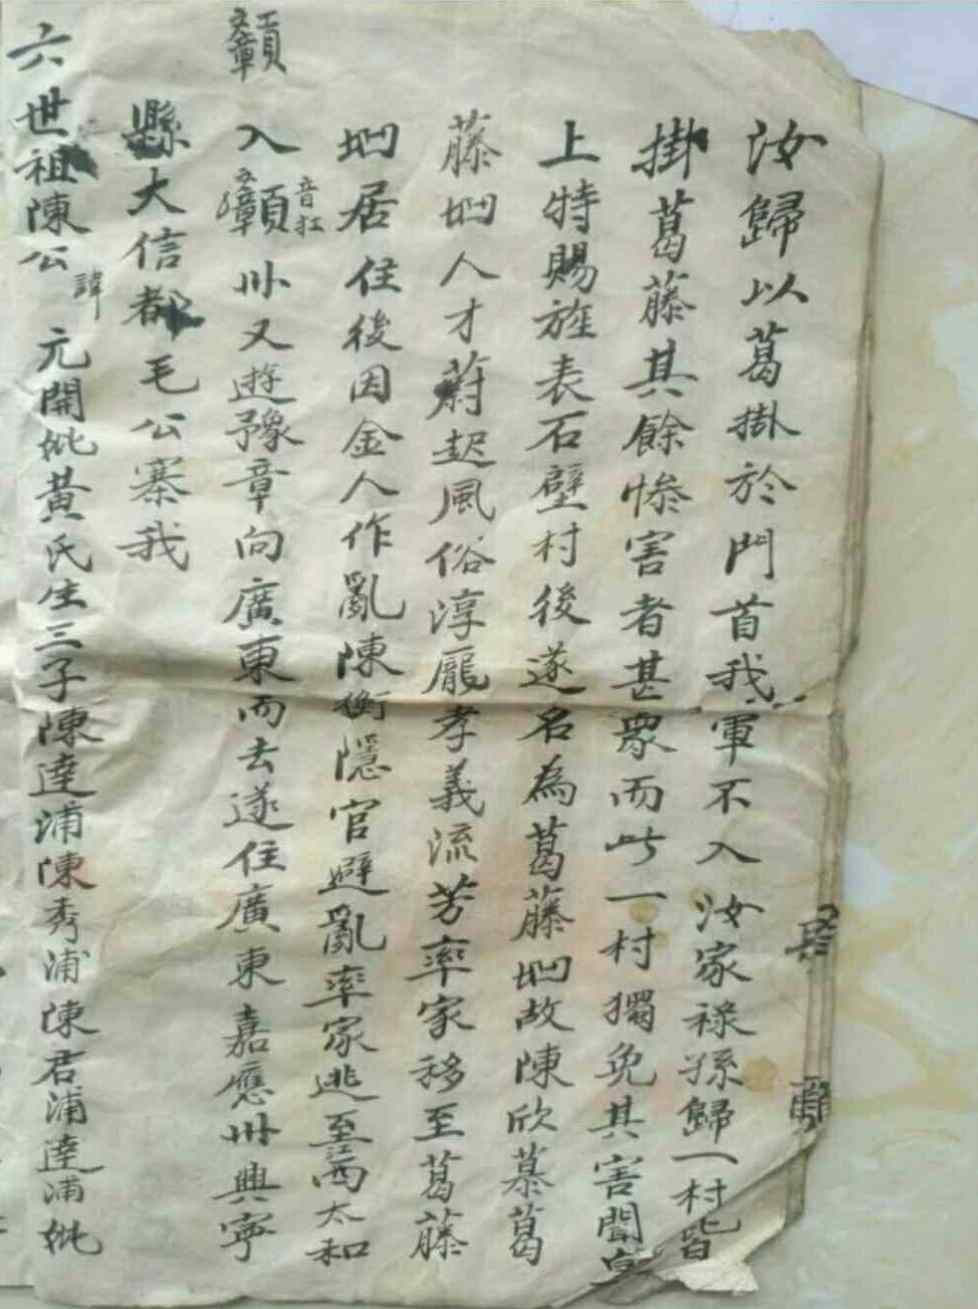 汝歸以葛掛於門首我軍不入汝家祿孫歸一村皆
掛葛藤其餘慘害者甚眾而此一村獨免其害聞皇
上特賜旌表石壁村後遂名為葛藤㘭故陳欣慕葛
藤㘭人才蔚起風俗淳龐孝義流芳率家移至葛藤
㘭居住後因金人作亂陳衡隱官避亂率家逃至江西太和
贛
入贛音扛州又遊豫章向廣東而去遂住廣東嘉應州興寧
縣大信都毛公寨我
六世祖陳公諱元開妣黃氏生三子陳達浦陳秀浦陳君浦達浦妣